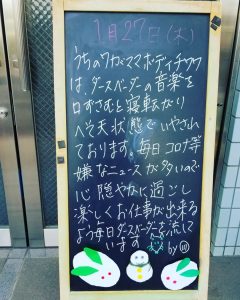 1月27日(木)
うちのワガママボディチワワ
は、ダースベーダーの音楽を
口ずさむと寝転がり
へそ天状態でいやされ
ております。毎日コロナ等
嫌なニュースが多いので
心穏やかに過ごし
楽しくお仕事が出来る
よう毎日ダースベーダーを流して
います by